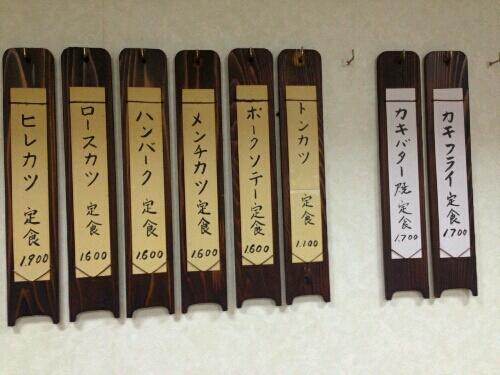 ヒレカツ定食
1.900
ロースカツ定食
1.600
ハンバーク定食
1.600
メンチカツ定食
1.600
ポークソテー定食
1.600
トンカツ定食
1.100
カキバター焼定食
1.700
カキフライ定食
1700